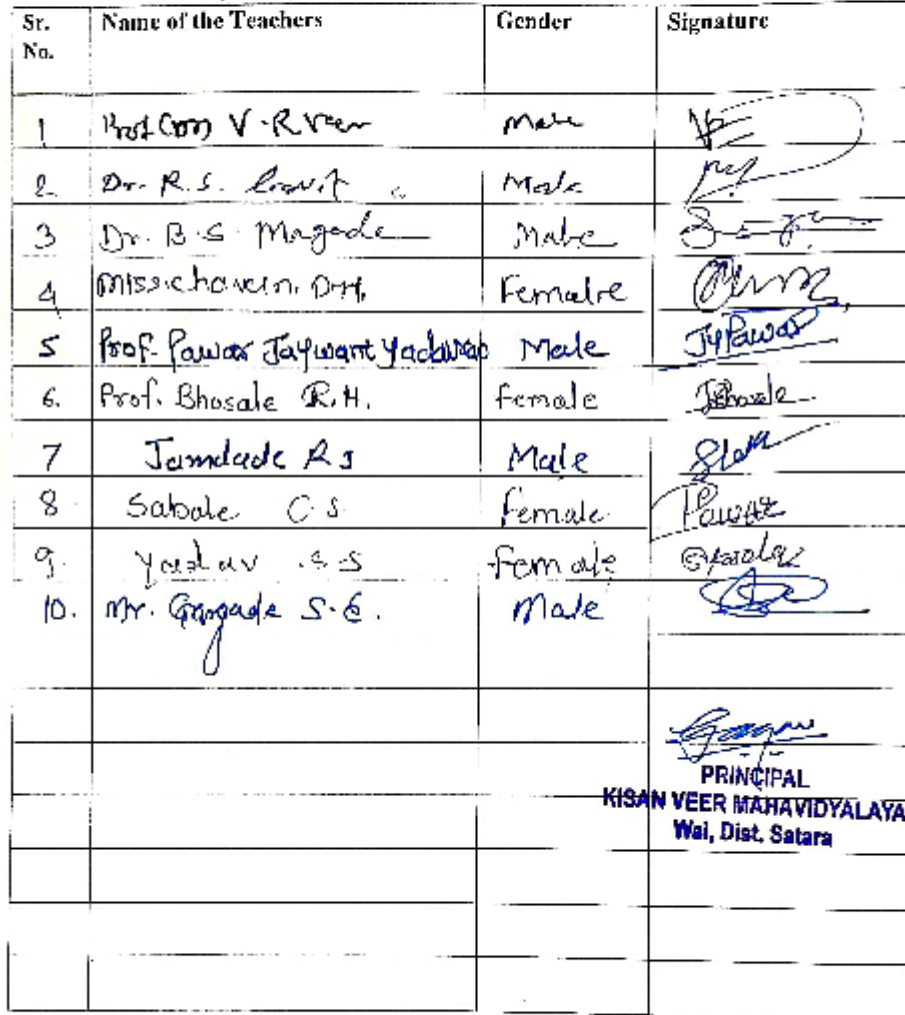 Sr. No. Name of the Teachers Gender Signature
1 Prof. V.R Veer Male
2 Dr. R.S. Male
3 Dr. B.S. Magade Male
4 Miss. D.H. Femalre
5 Prof. Pawar Jaywant Yadavrao Male JyPawar
6. Prof. Bhosale R.H. Female
7 Jamdade R J Male
8 Sabale C.S Female Pawar
9. Yadav .S.S Female
10. Mr. Gangade S. Male
PRINCIPAL
KISAN VEER MAHAVIDYALAYA
Wai, Dist. Satara